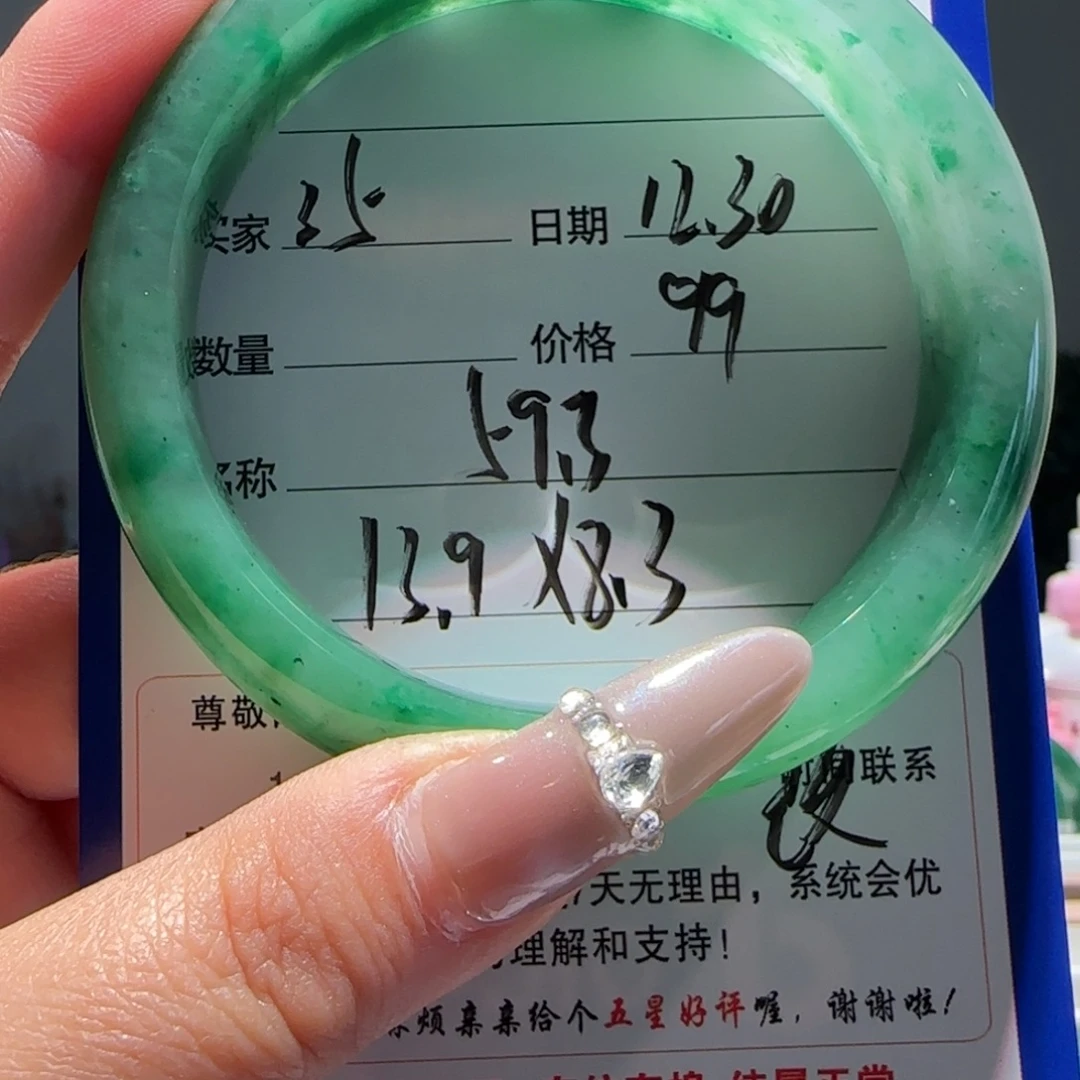 买家 35 日期 12.30
数量 价格 99
名称 59.3
13.9 X8.3
尊敬
1
时间联系
良
7天无理由，系统会优
理解和支持！
烦亲亲给个五星好评喔，谢谢啦！